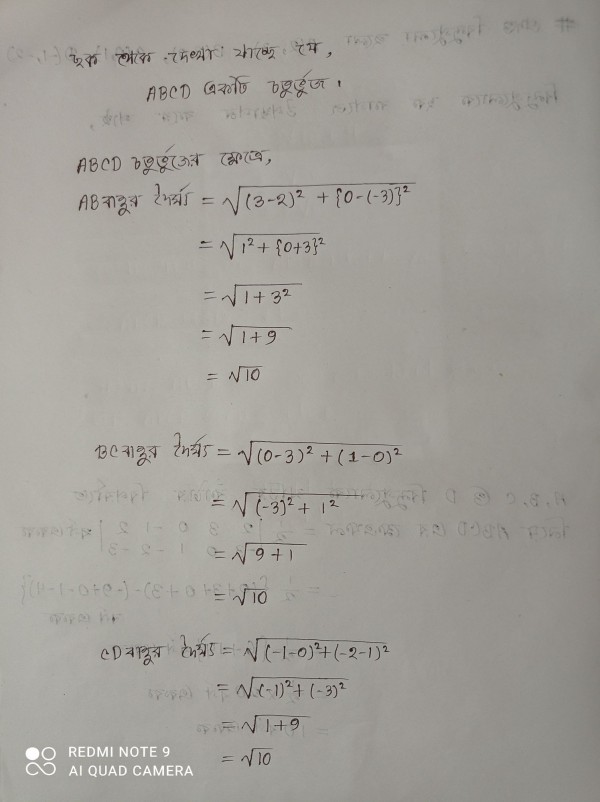 ছক থেকে দেখা যাচ্ছে যে,
ABCD একটি চতুর্ভুজ।
ABCD চতুর্ভুজের ক্ষেত্রে,
AB বাহুর দৈর্ঘ্য = √(3-2)² + {0-(-3)}²
= √1² + {0+3}²
= √1+3²
= √1+9
= √10
BC বাহুর দৈর্ঘ্য = √(0-3)² + (1-0)²
= √(-3)² + 1²
= √9+1
= √10
CD বাহুর দৈর্ঘ্য = √(-1-0)²+(-2-1)²
= √(-1)²+(-3)²
= √1+9
= √10
REDMI NOTE 9
AI QUAD CAMERA